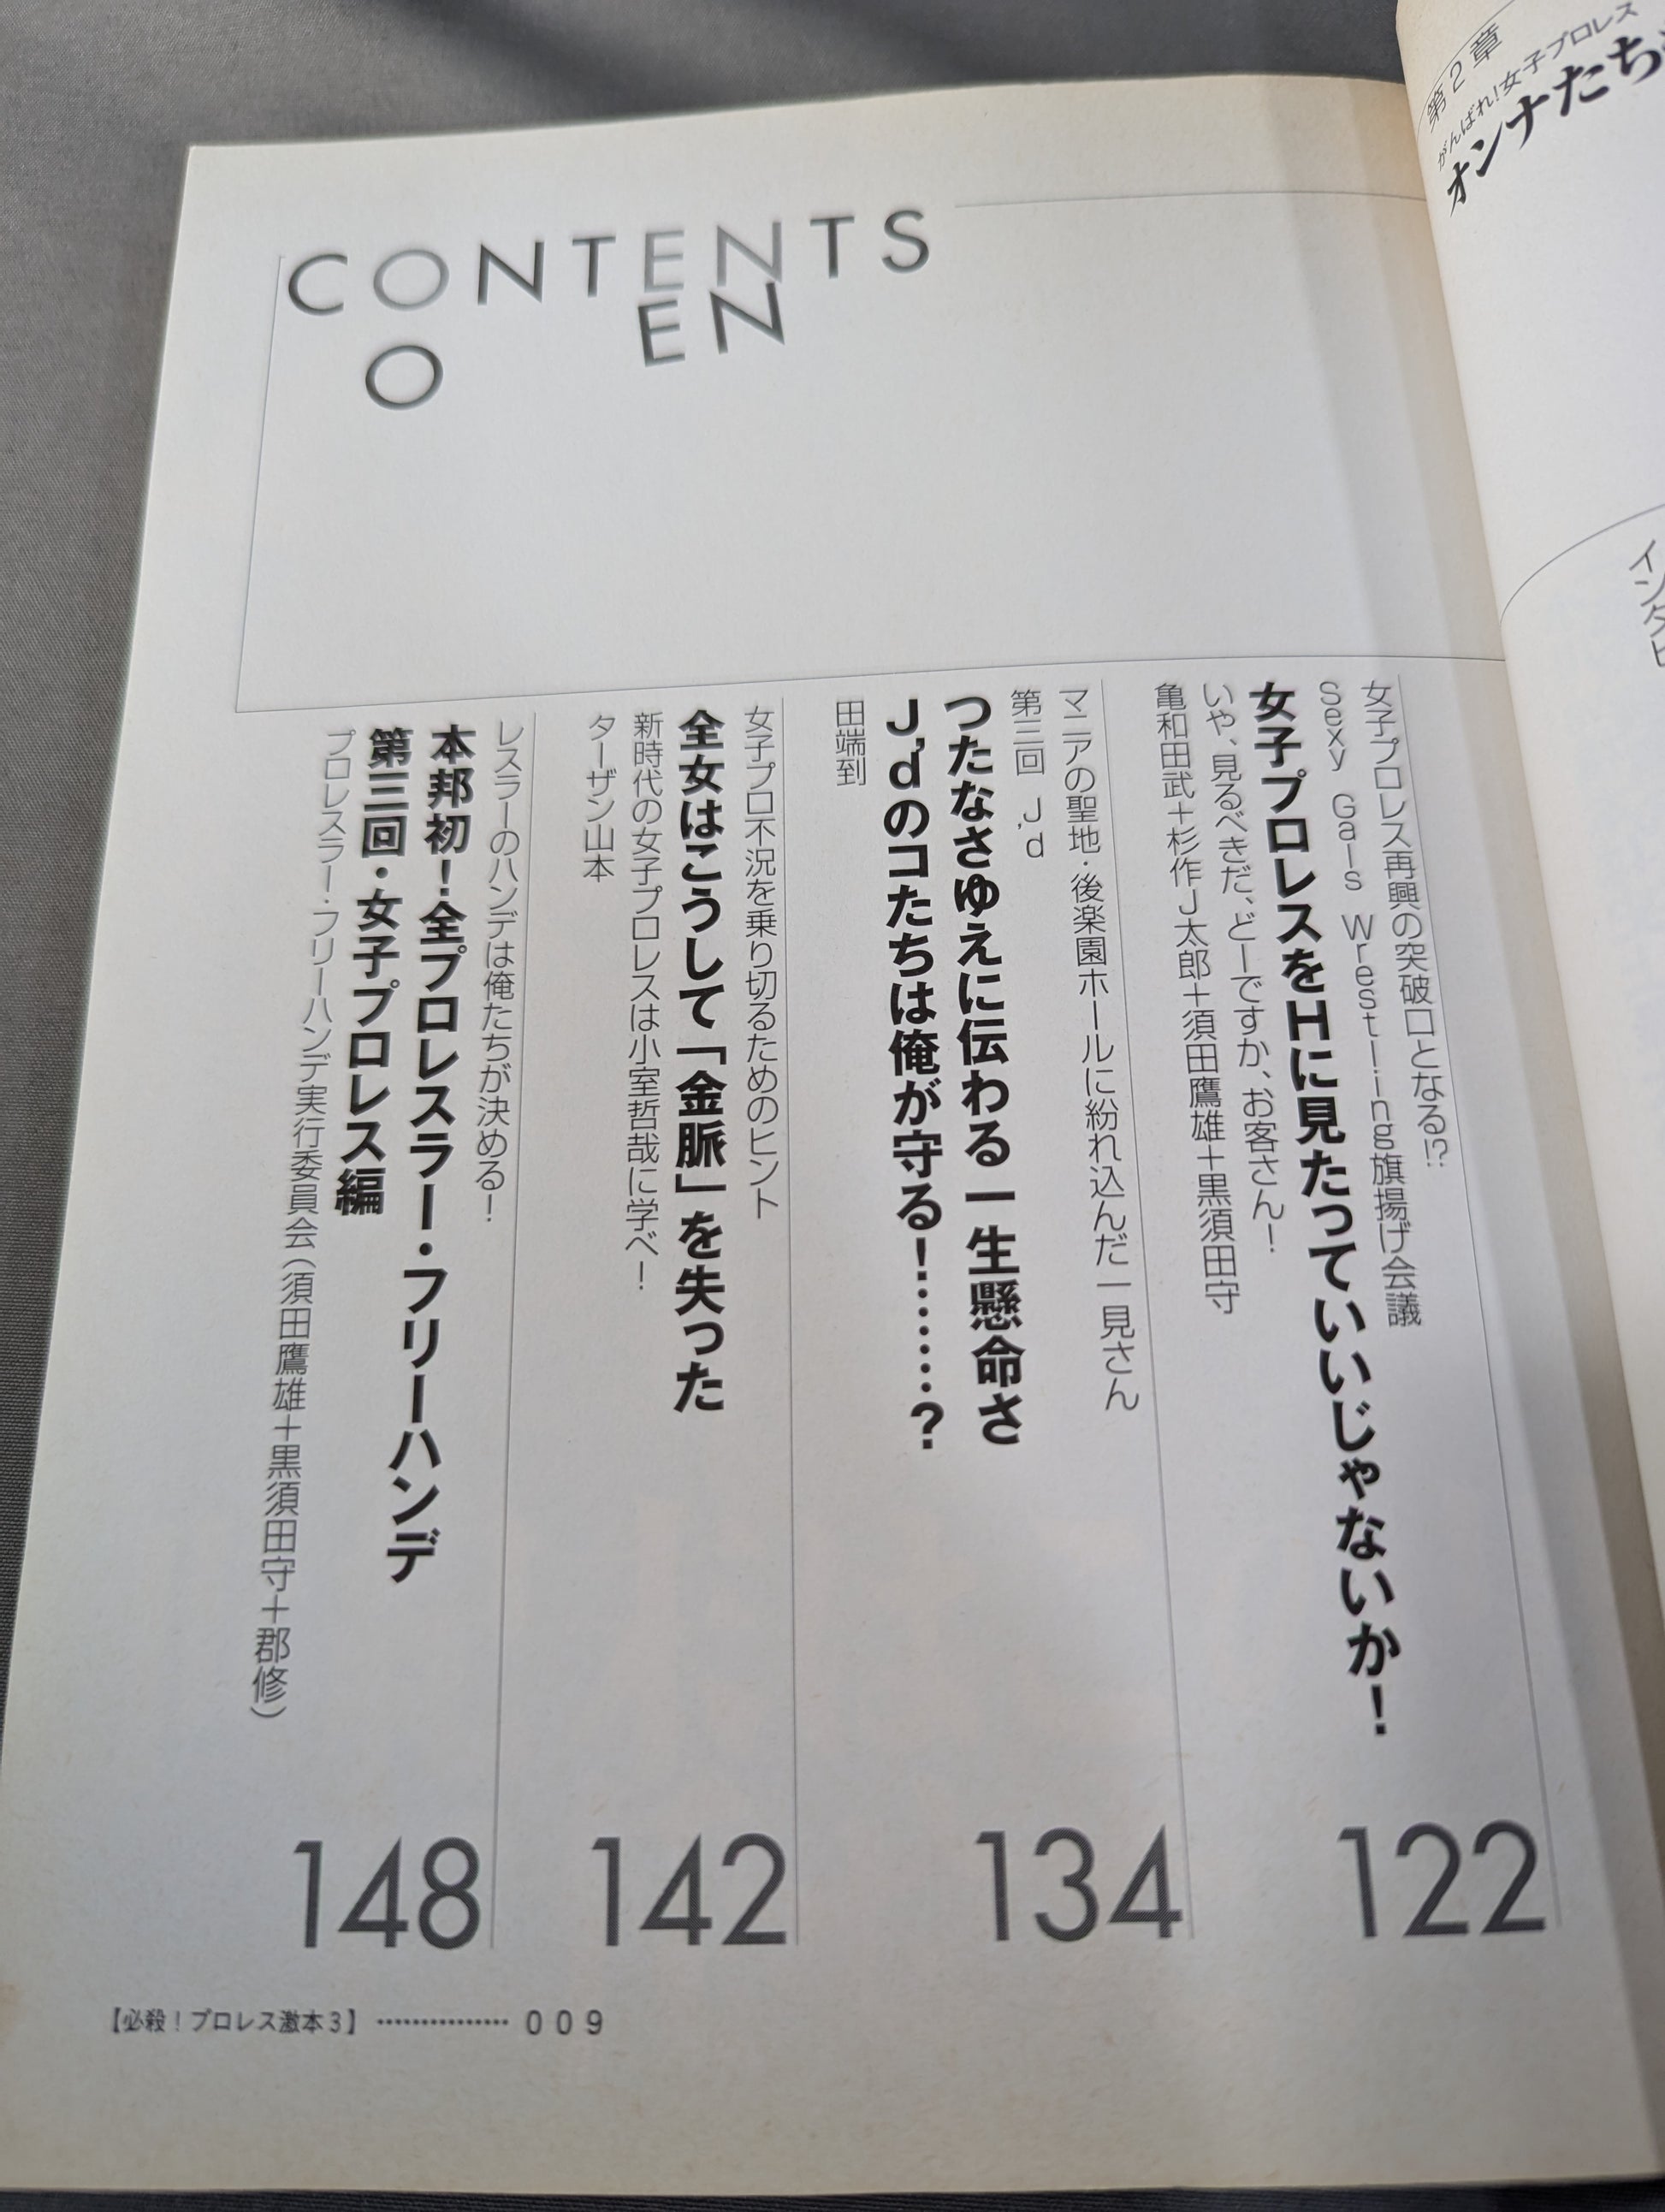 第2章
がんばれ！女子プロレス
オンナたち
CONTENTS
O EN
女子プロレス再興の突破口となる!?
Sexy Gals Wrestling旗揚げ会議
女子プロレスをHに見たっていいじゃないか！
いや、見るべきだ、どーですか、お客さん！
亀和田武＋杉作J太郎＋須田鷹雄＋黒須田守
122
マニアの聖地・後楽園ホールに紛れ込んだ一見さん
第三回 J'd
つたなさゆえに伝わる一生懸命さ
J'dのコたちは俺が守る！……？
田端到
134
女子プロ不況を乗り切るためのヒント
全女はこうして「金脈」を失った
新時代の女子プロレスは小室哲哉に学べ！
ターザン山本
142
レスラーのハンデは俺たちが決める！
本邦初！全プロレスラー・フリーハンデ
第三回・女子プロレス編
プロレスラー・フリーハンデ実行委員会（須田鷹雄＋黒須田守＋郡修）
148
【必殺！プロレス激本3】 …………… 009